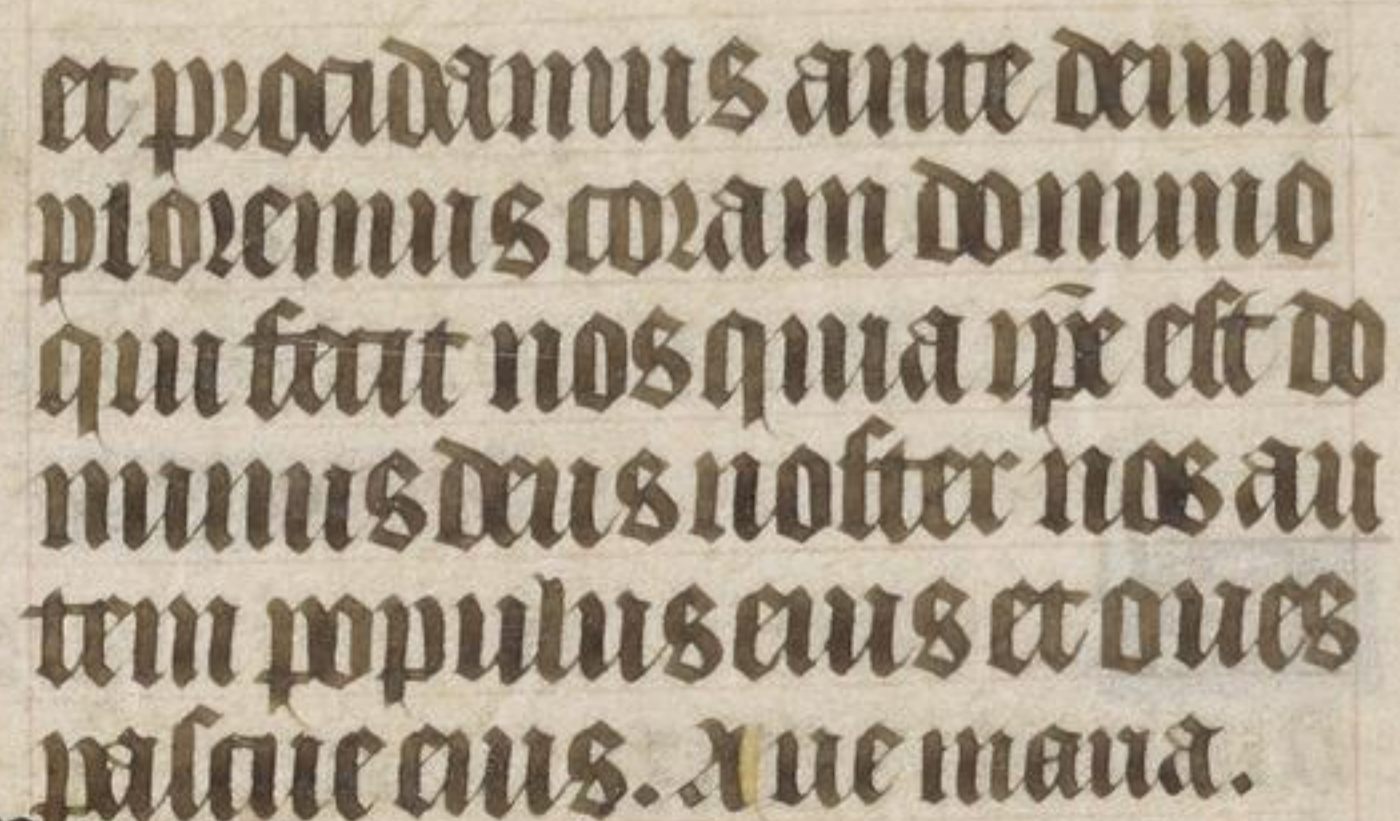 et procidamus ante deum
ploremus coram domino
qui fecit nos quia ip̄e est do
minus deus noster nos au
tem populus eius et oues
pascue eius. Aue maria.